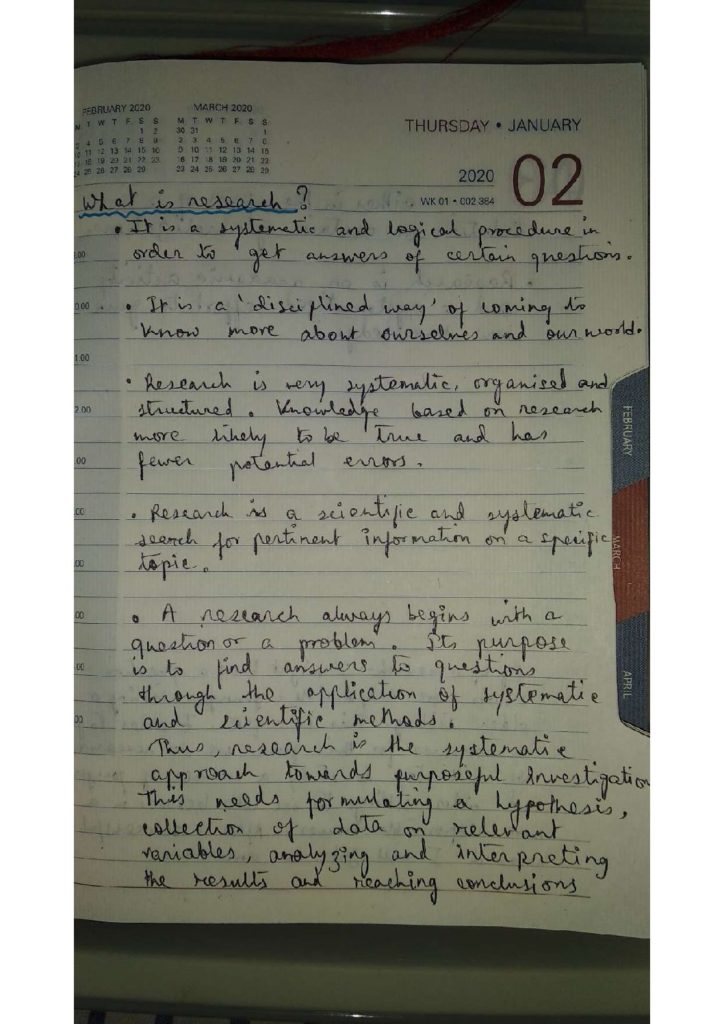 FEBRUARY 2020
M T W T F S S
1 2
3 4 5 6 7 8 9
10 11 12 13 14 15 16
17 18 19 20 21 22 23
24 25 26 27 28 29
MARCH 2020
M T W T F S S
30 31 1
2 3 4 5 6 7 8
9 10 11 12 13 14 15
16 17 18 19 20 21 22
23 24 25 26 27 28 29
THURSDAY • JANUARY
2020
02
WK 01 • 002-364
What is research?
• It is a systematic and logical procedure in
order to get answers of certain questions.
• It is a 'disciplined way' of coming to
know more about ourselves and our world.
• Research is very systematic, organised and
structured. Knowledge based on research
more likely to be true and has
fewer potential errors.
• Research is a scientific and systematic
search for pertinent information on a specific
topic.
• A research always begins with a
question or a problem. Its purpose
is to find answers to questions
through the application of systematic
and scientific methods.
Thus, research is the systematic
approach towards purposeful investigation
This needs formulating a hypothesis,
collection of data on relevant
variables, analyzing and interpreting
the results and reaching conclusions
FEBRUARY
MARCH
APRIL